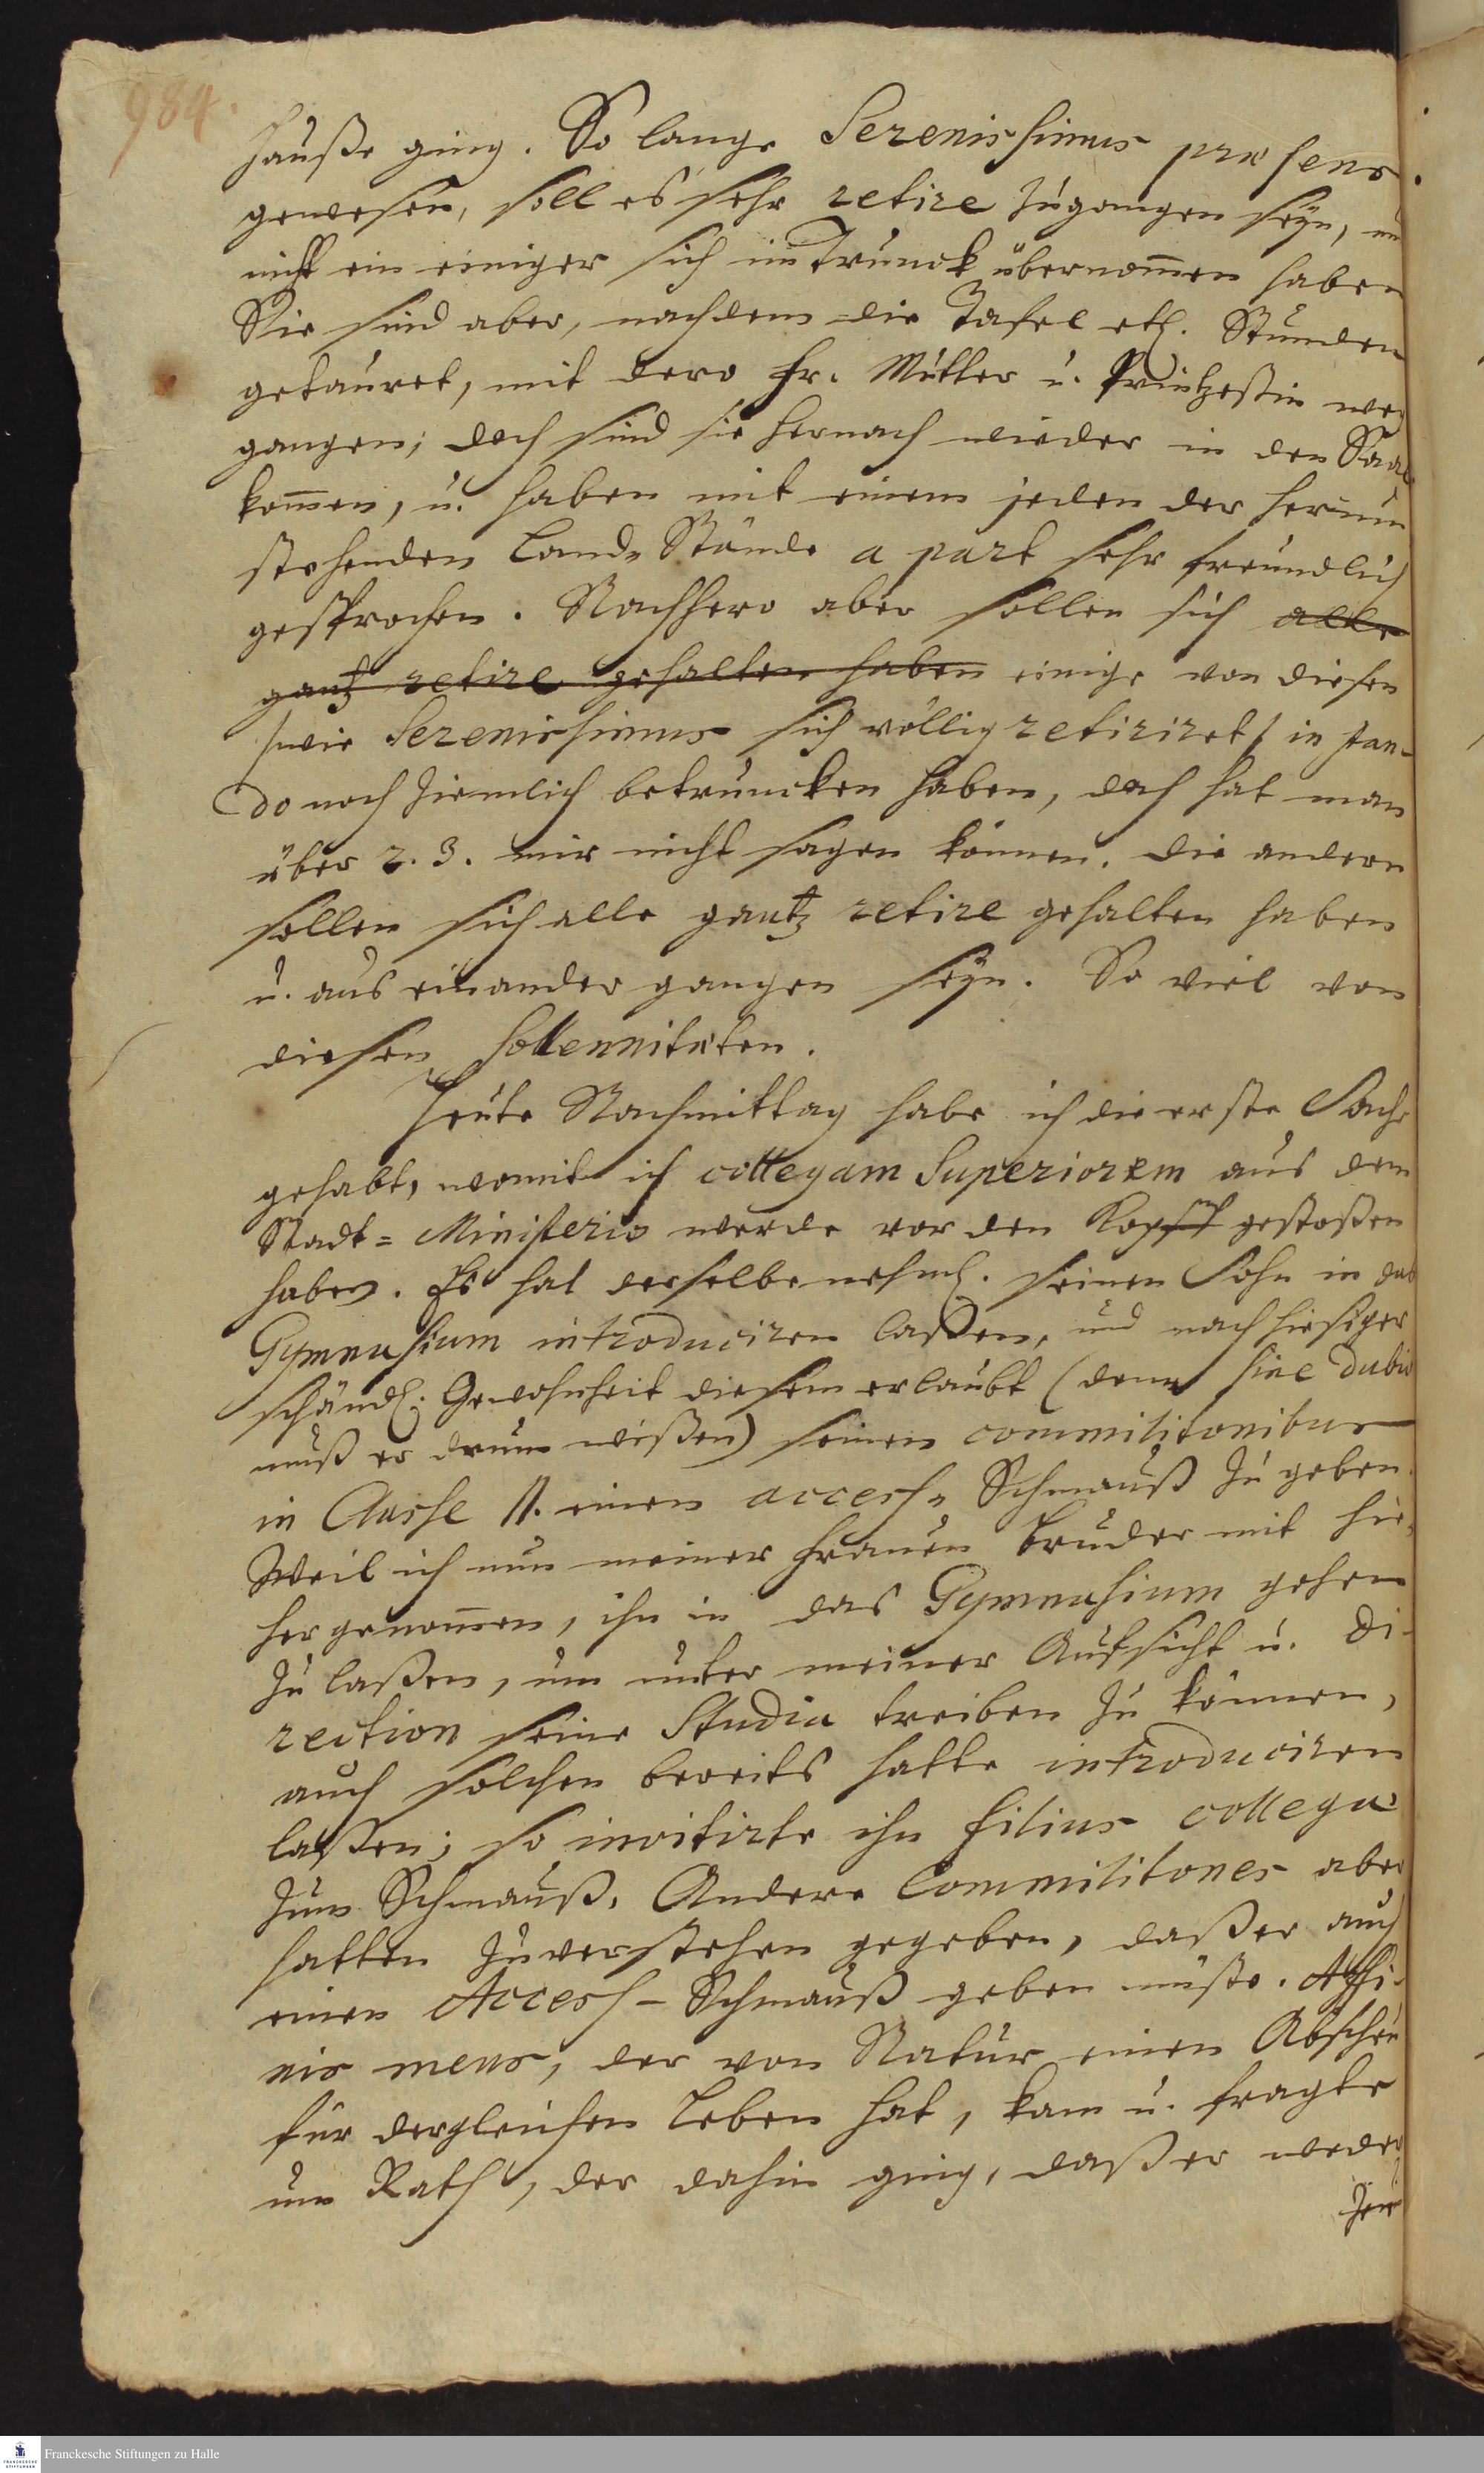 984.
Hauße ging. So lange Serenissimus præsens
gewesen, soll es sehr retire zugangen seyn, un
nicht ein einiger sich im Trunck übernom̄en haben
Sie sind aber, nachdem die Tafel etl. Stunden
getauret, mit dero Fr. Mutter u. Printzeßin weg
gangen; doch sind sie hernach wieder in den Saal
kom̄en, u. haben mit einem jeden der herum
stehenden Land-Stände a part sehr freundlich
gesprochen. Nachhero aber sollen sich alle
gantz retire gehalten haben einige von diesen
/wie Serenissimus sich völlig retiriret/ in Tan-
do noch ziemlich betruncken haben, doch hat man
über 2. 3. mir nicht sagen können. die andern
sollen sich alle gantz retire gehalten haben
u. aus einander gangen seyn. So viel von
diesen Sollennitæten.
Heute Nachmittag habe ich die erste Sache
gehabt, womit ich collegam Superiorem aus dem
Stadt=Ministerio werde vor den Kopff gestoßen
haben. Es hat derselbe nehml. seinen Sohn in das
Gymnasium introduciren laßen, und nach hiesiger
schändl. Gewohnheit diesem erlaubt (denn sine dubio
muß er drum wißen) seinen commilitonibus
in Classe II. einen access-Schmauß zu geben.
Weil ich nun meiner Frauen Bruder mit hie-
her genom̄en, ihn in das Gymnasium gehen
zu laßen, um unter meiner Aufsicht u. Di-
rection seine Studia treiben zu können,
auch solchen bereits hatte introduciren
laßen; so invitirte ihn filius collegæ
zum Schmauß. Andere Commilitones aber
hatten zuverstehen gegeben, daß er auch
einen Access-Schmauß geben müste. Affi-
nis meus, der von Natur einen Abscheu
für dergleichen Leben hat, kam u. fragte
um Rath, der dahin ging, daß er weder
Franckesche Stiftungen zu Halle